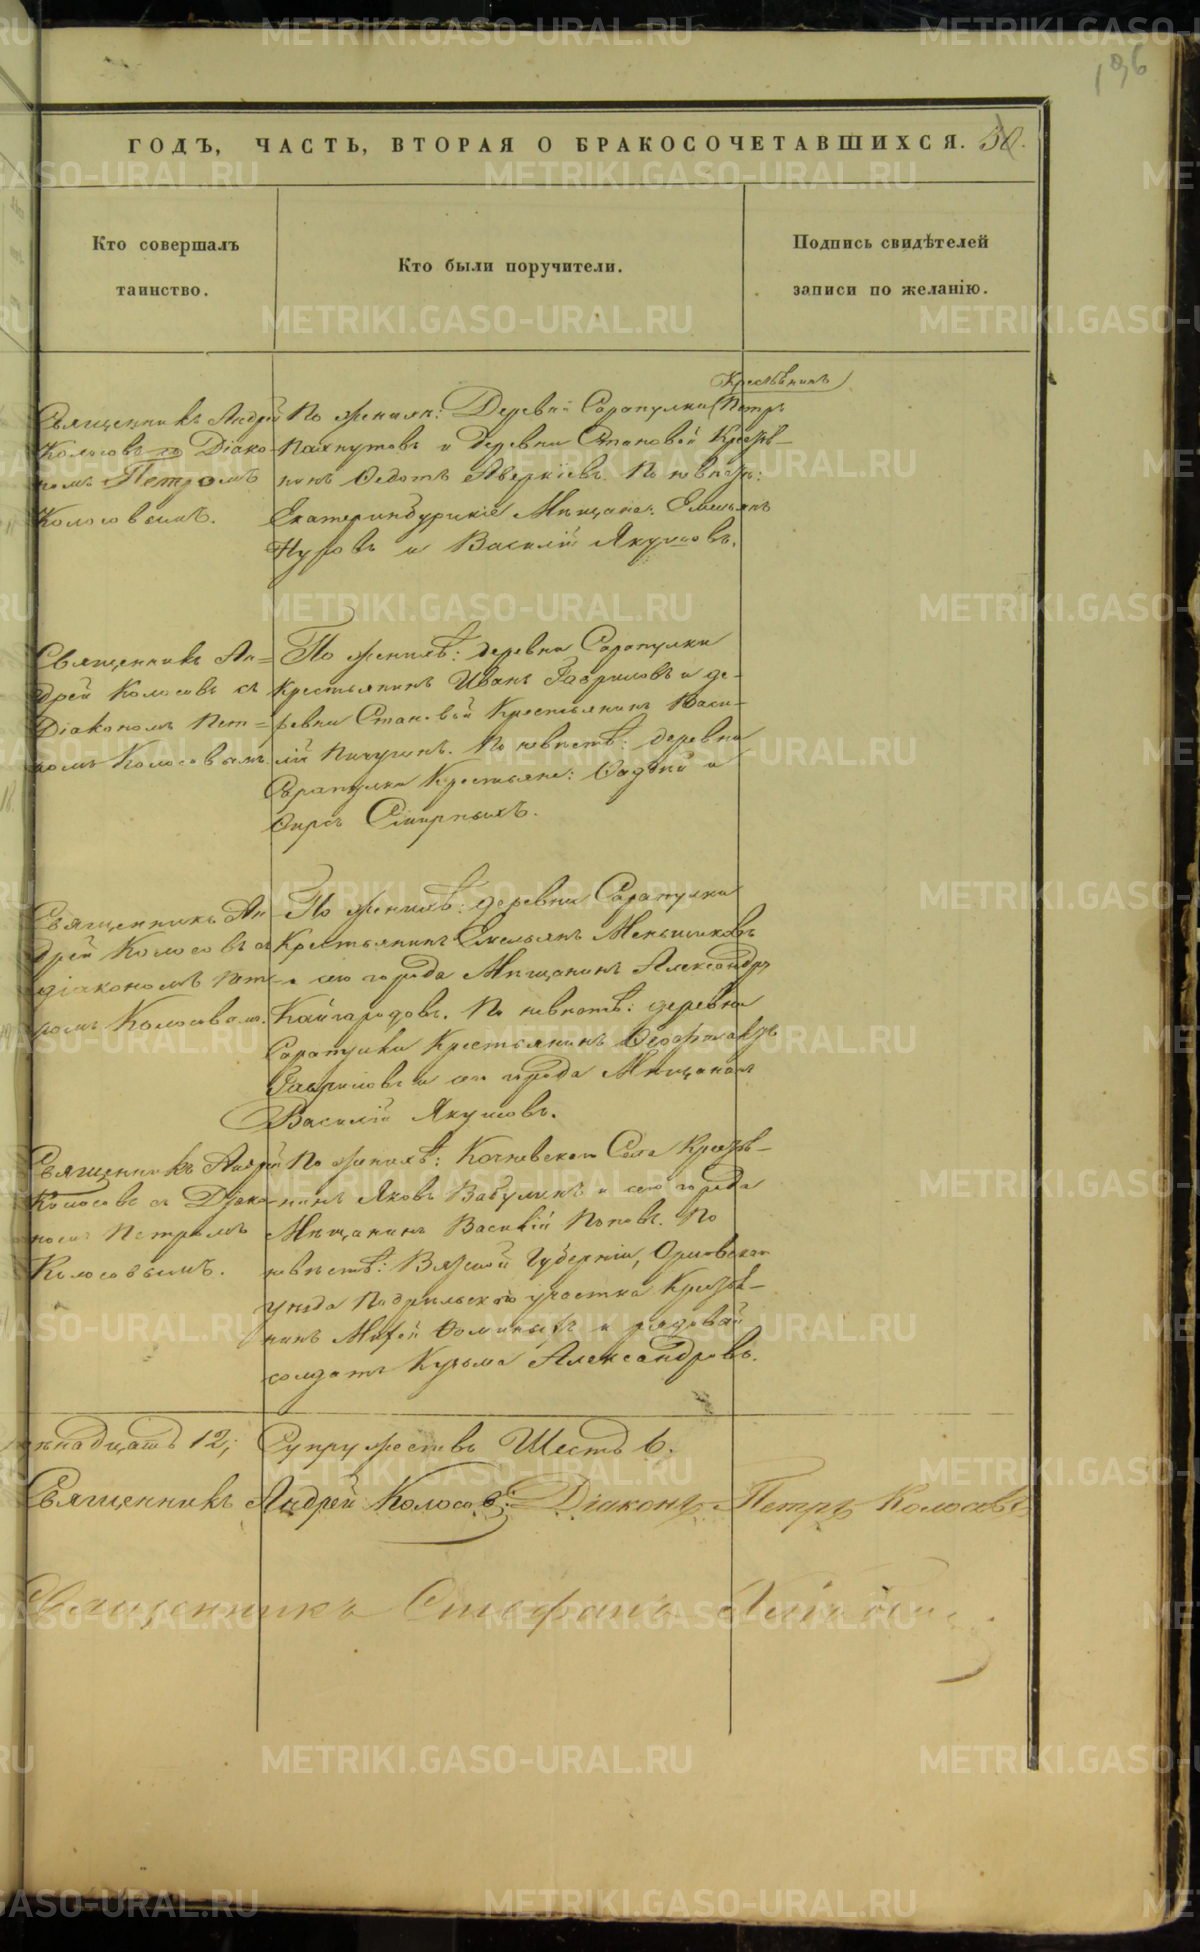 196
ГОДЪ, ЧАСТЬ, ВТОРАЯ О БРАКОСОЧЕТАВШИХСЯ. 50.
Кто совершалъ
таинство.
Кто были поручители.
Подпись свидѣтелей
записи по желанію.
Священникъ Андрей
Колосовъ съ Діако-
номъ Петромъ
Колосовымъ.
Крестьянинъ
По жених: Деревни Сарапулки Петръ
Пахнутовъ и деревни Становой Кресть-
нинъ Ѳедотъ Аверкіевъ. По невѣст:
Екатеринбургскіе Мѣщане: Емельянъ
Нуровъ и Василій Якушовъ.
Священникъ Ан=
дрей Колосовъ съ
Діакономъ Пет=
ромъ Колосовымъ.
По женихѣ: деревни Сарапулки
Крестьянинъ Иванъ Гавриловъ и де-
ревни Становой Крестьянинъ Васи-
лій Пичугинъ. По невѣстѣ: деревни
Сарапулки Крестьяне: Фадѣй и
Ѳирсъ Смирныхъ.
Священникъ Ан-
дрей Колосовъ съ
діакономъ Пет-
ромъ Колосовым.
По женихѣ: деревни Сарапулки
Крестьянинъ Емельянъ Меньшиковъ
и сего города Мѣщанинъ Александръ
Кайгародовъ. По невѣстѣ: деревни
Сарапулки Крестьянинъ Ѳеофилактъ
Гавриловъ и сего города Мѣщанинъ
Василій Якушовъ.
Священникъ Андрей
Колосовъ съ Діако-
номъ Петромъ
Колосовымъ.
По женихѣ: Кочневскаго Села Кресть-
нинъ Яковъ Вабулинъ и сего города
Мѣщанинъ Василій Поповъ. По
невѣстѣ: Вятской Губерніи, Орловскаго
уѣзда Подрельскаго участка Кресть-
нинъ Матѳей Ѳоминыхъ и рядовой
солдатъ Кузьма Александровъ.
надцать 12; Супружествъ Шесть 6.
Священникъ Андрей Колосовъ. Діаконъ Петръ Колосовъ
Священникъ Стефанъ
METRIKI.GASO-URAL.RU